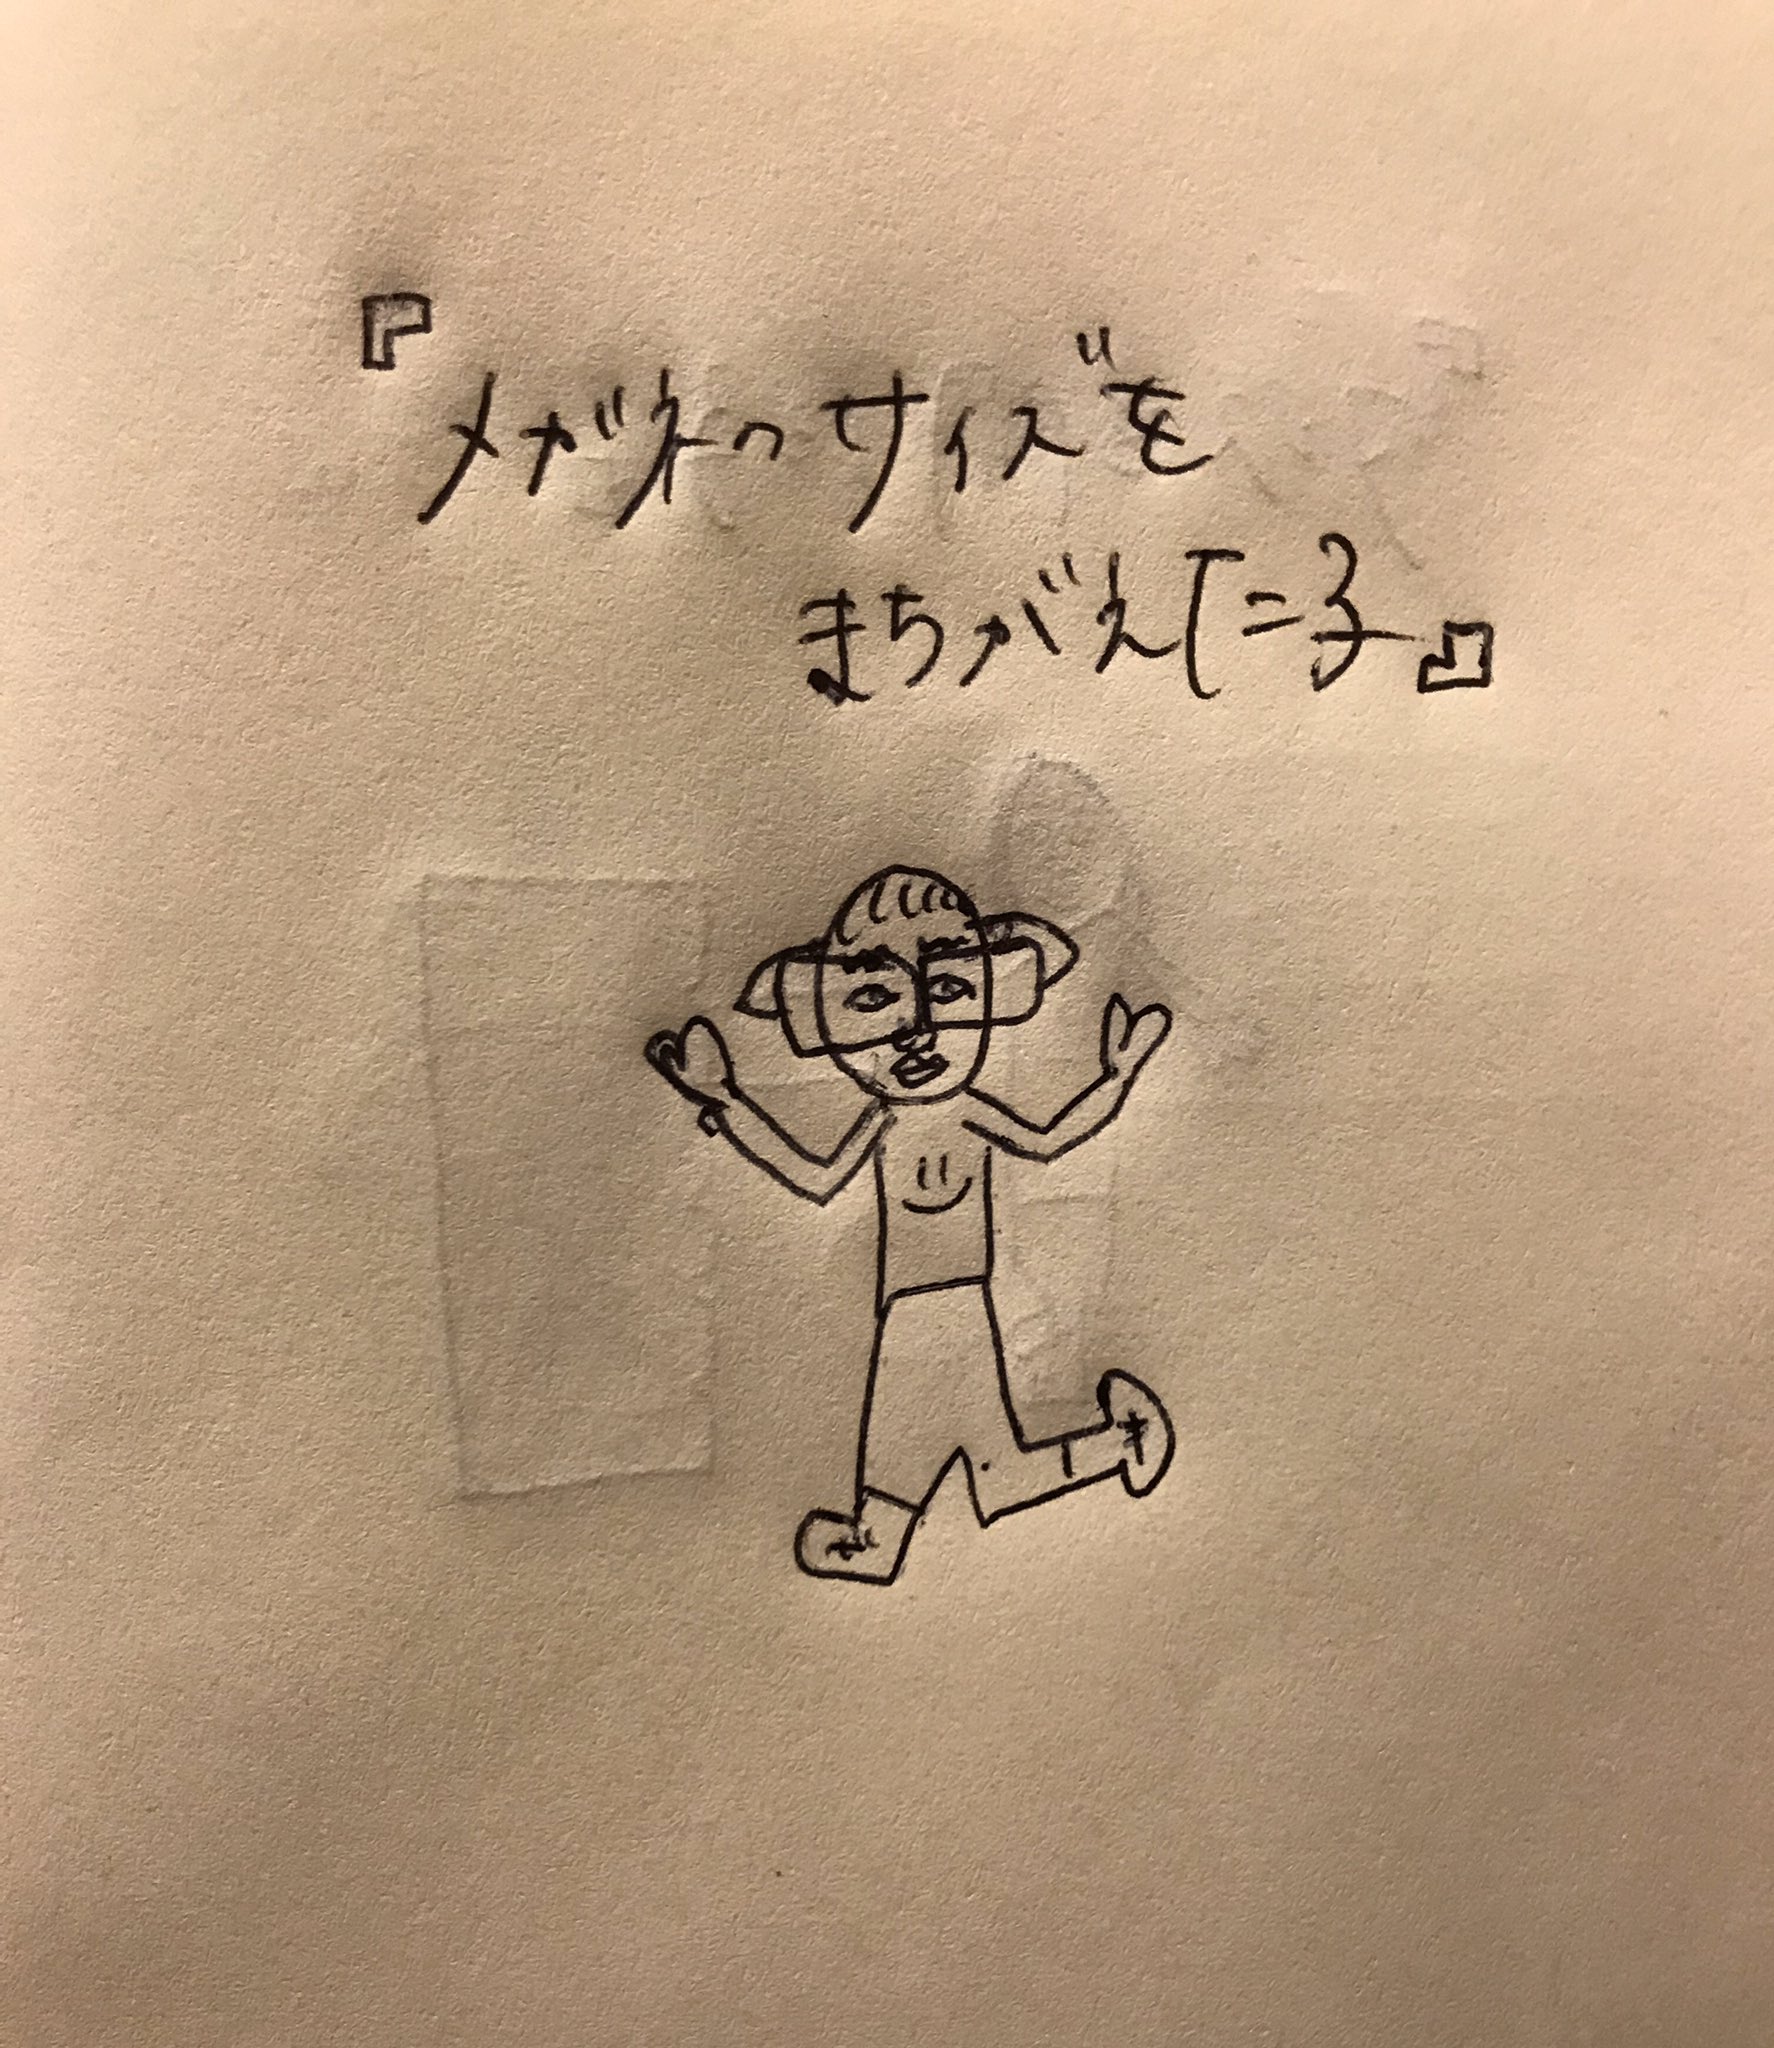 『メガネのサイズを
まちがえた子』